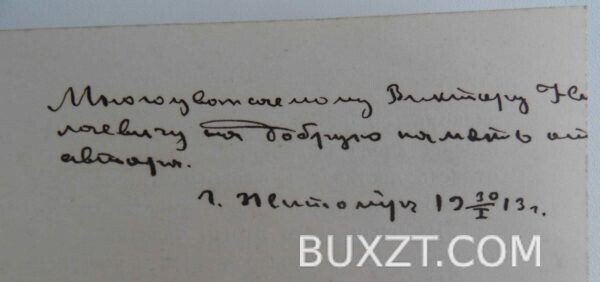 Многоуважаемому Виктору Ни
лаевичу на добрую память от
автора.
г. Житомiръ 19 30/I 13 г.
BUXZT.COM